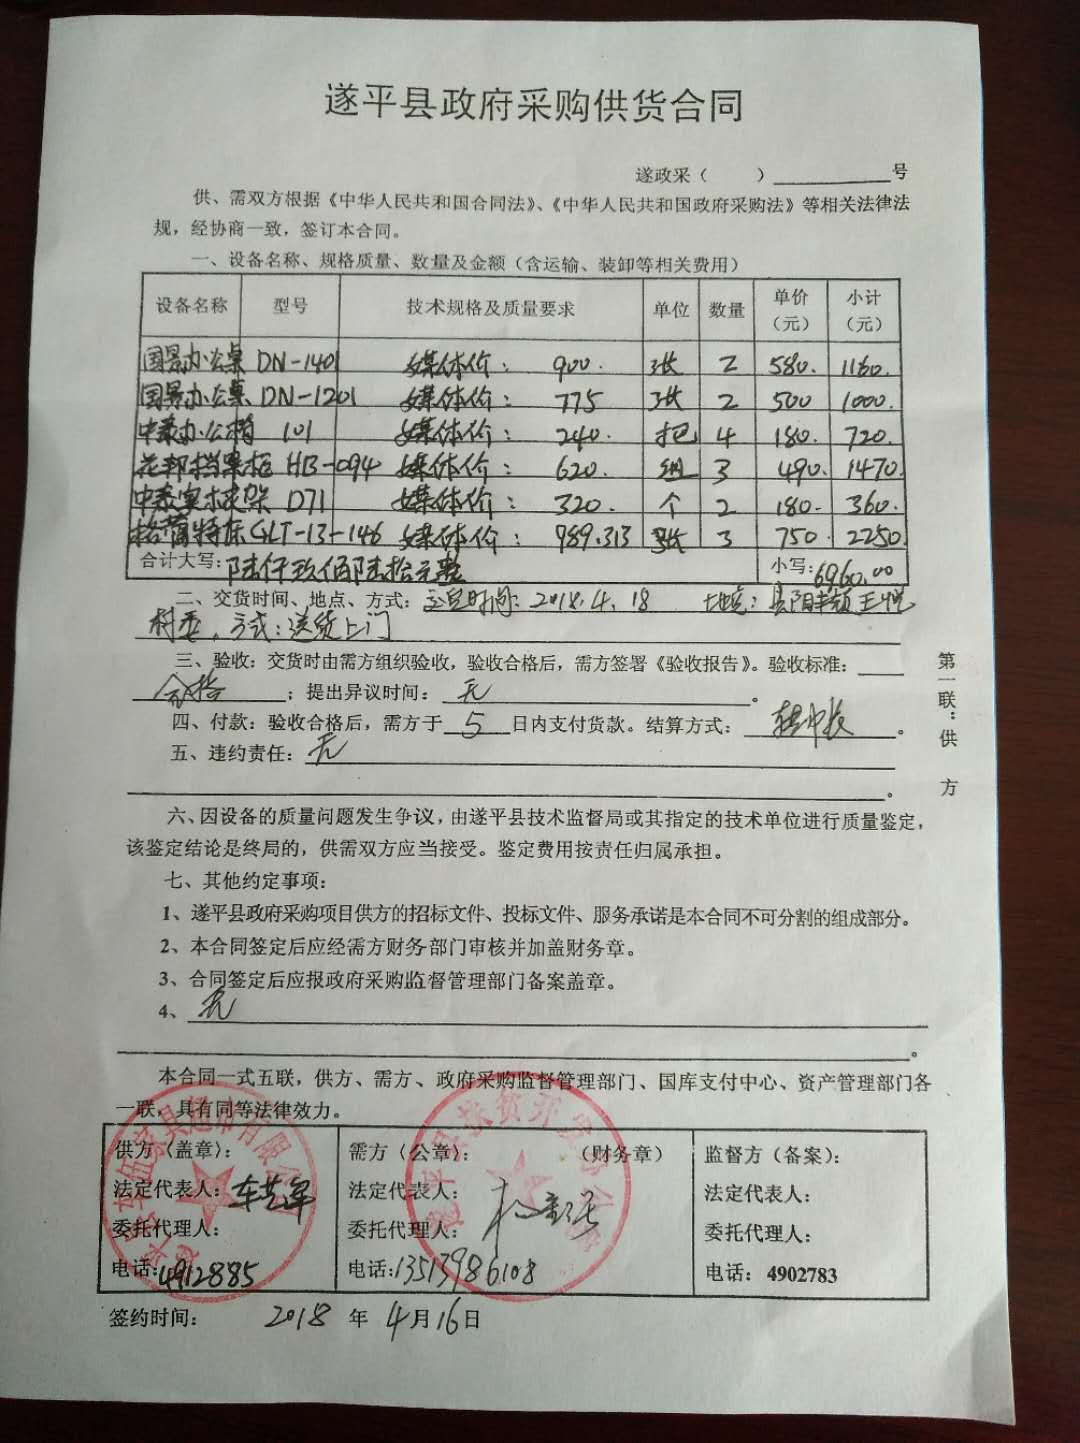 遂平县政府采购供货合同
遂政采（ ）号
供、需双方根据《中华人民共和国合同法》、《中华人民共和国政府采购法》等相关法律法
规，经协商一致，签订本合同。
一、设备名称、规格质量、数量及金额（含运输、装卸等相关费用）
设备名称 型号 技术规格及质量要求 单位 数量 单价（元） 小计（元）
国景办公桌 DN-1401 媒体价： 900. 张 2 580. 1160.
国景办公桌 DN-1201 媒体价： 775 张 2 500 1000.
中泰办公椅 101 媒体价： 240. 把 4 180. 720.
花邦档案柜 HB-094 媒体价： 620. 组 3 490. 1470.
中泰实木茶架 D71 媒体价： 320. 个 2 180. 360.
格蕾特床 GLT-13-146 媒体价： 989.313 张 3 750. 2250.
合计大写：陆仟玖佰陆拾元整 小写：6960.00
二、交货时间、地点、方式：交货时间：2018.4.18 地点：县阳丰镇王悦
村委，方式：送货上门
三、验收：交货时由需方组织验收，验收合格后，需方签署《验收报告》。验收标准：
合格；提出异议时间：无。
四、付款：验收合格后，需方于5日内支付货款。结算方式：。
五、违约责任：无
。
六、因设备的质量问题发生争议，由遂平县技术监督局或其指定的技术单位进行质量鉴定，
该鉴定结论是终局的，供需双方应当接受。鉴定费用按责任归属承担。
七、其他约定事项：
1、遂平县政府采购项目供方的招标文件、投标文件、服务承诺是本合同不可分割的组成部分。
2、本合同签定后应经需方财务部门审核并加盖财务章。
3、合同签定后应报政府采购监督管理部门备案盖章。
4、无
。
本合同一式五联，供方、需方、政府采购监督管理部门、国库支付中心、资产管理部门各
一联，具有同等法律效力。
第一联：供方
供方（盖章）： 需方（公章）： （财务章） 监督方（备案）：
法定代表人： 法定代表人： 法定代表人：
委托代理人： 委托代理人： 委托代理人：
电话：4912885 电话：13513986108 电话：4902783
签约时间： 2018 年 4月16日